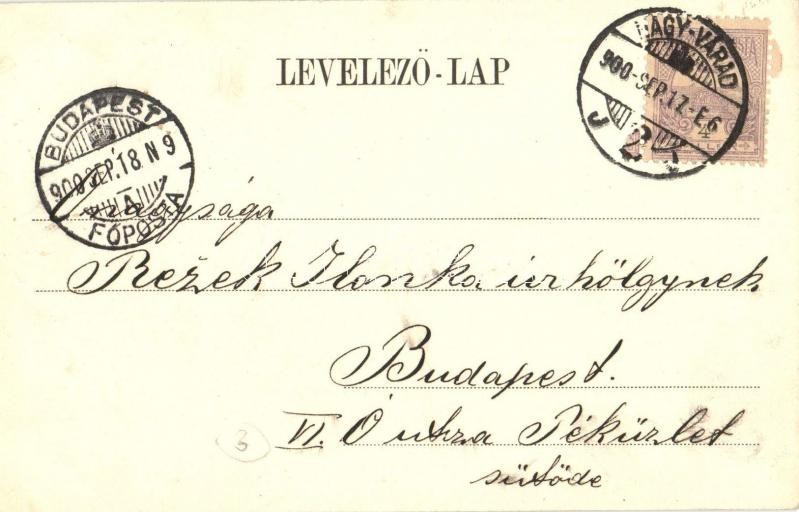 LEVELEZŐ-LAP
NAGY-VÁRAD
900-SEP.17-E.6
J 2
4
BUDAPEST
900 SEP.18 N 9
A
FŐPOSTA
Nagysága
Režek Ilonka úrhölgynek
Budapest.
VI. Ó utsza Péküzlet
sütöde
3